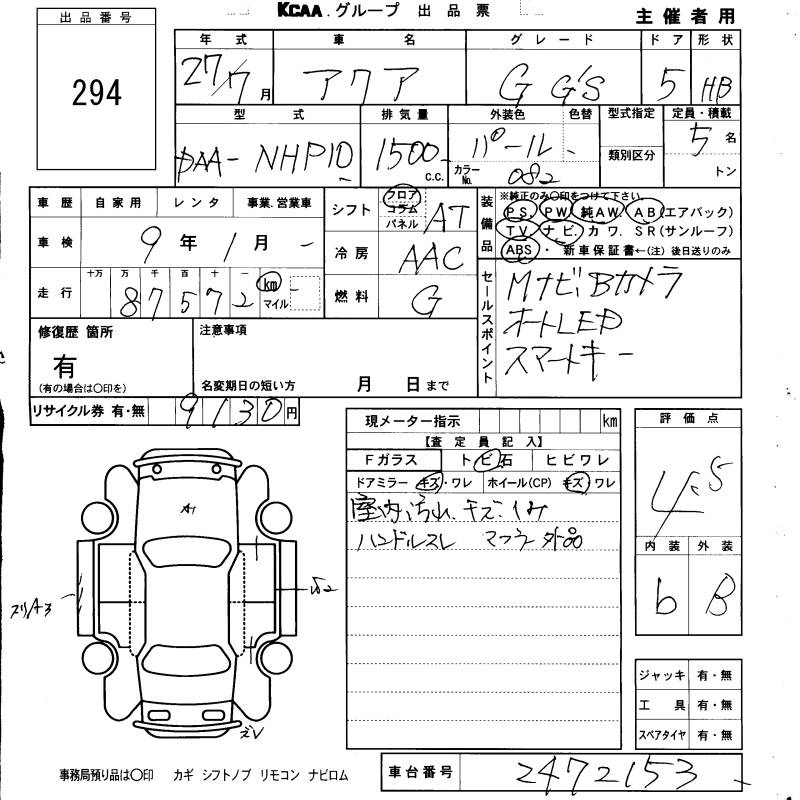 KCAA.グループ 出品票
主催者用
出品番号
294
年式 車名 グレード ドア 形状
27/7月 アクア G G's 5 HB
型式 排気量 外装色 色替 型式指定 定員・積載
DAA- NHP10 1500 c.c. パール カラーNo. 082 類別区分 5名 トン
車歴 自家用 レンタ 事業.営業車
車検 9年1月
走行 十万 万 千 百 十 一
87572 km マイル
シフト フロア コラム パネル AT
冷房 AAC
燃料 G
装備品 ※純正のみ○印をつけて下さい。
P S. P W. 純AW. A B (エアバック)
T V. ナ ビ. カ ワ. S R (サンルーフ)
ABS ・ 新車保証書←(注) 後日送りのみ
セールスポイント
MナビBカメラ
オートLED
スマートキー
修復歴 箇所 注意事項
有
(有の場合は○印を) 名変期日の短い方 月 日まで
リサイクル券 有・無 9130円
現メーター指示 km
【査定員記入】
Fガラス トビ石 ヒビワレ
ドアミラー キズ・ワレ ホイール(CP) キズ ワレ
室内汚れ.キズ.イタミ
ハンドルスレ マフラー外品
評価点
4.5
内装 外装
b B
A1
スリA3
U2
ズレ
ジャッキ 有・無
工具 有・無
スペアタイヤ 有・無
事務局預り品は○印 カギ シフトノブ リモコン ナビロム
車台番号 2472153